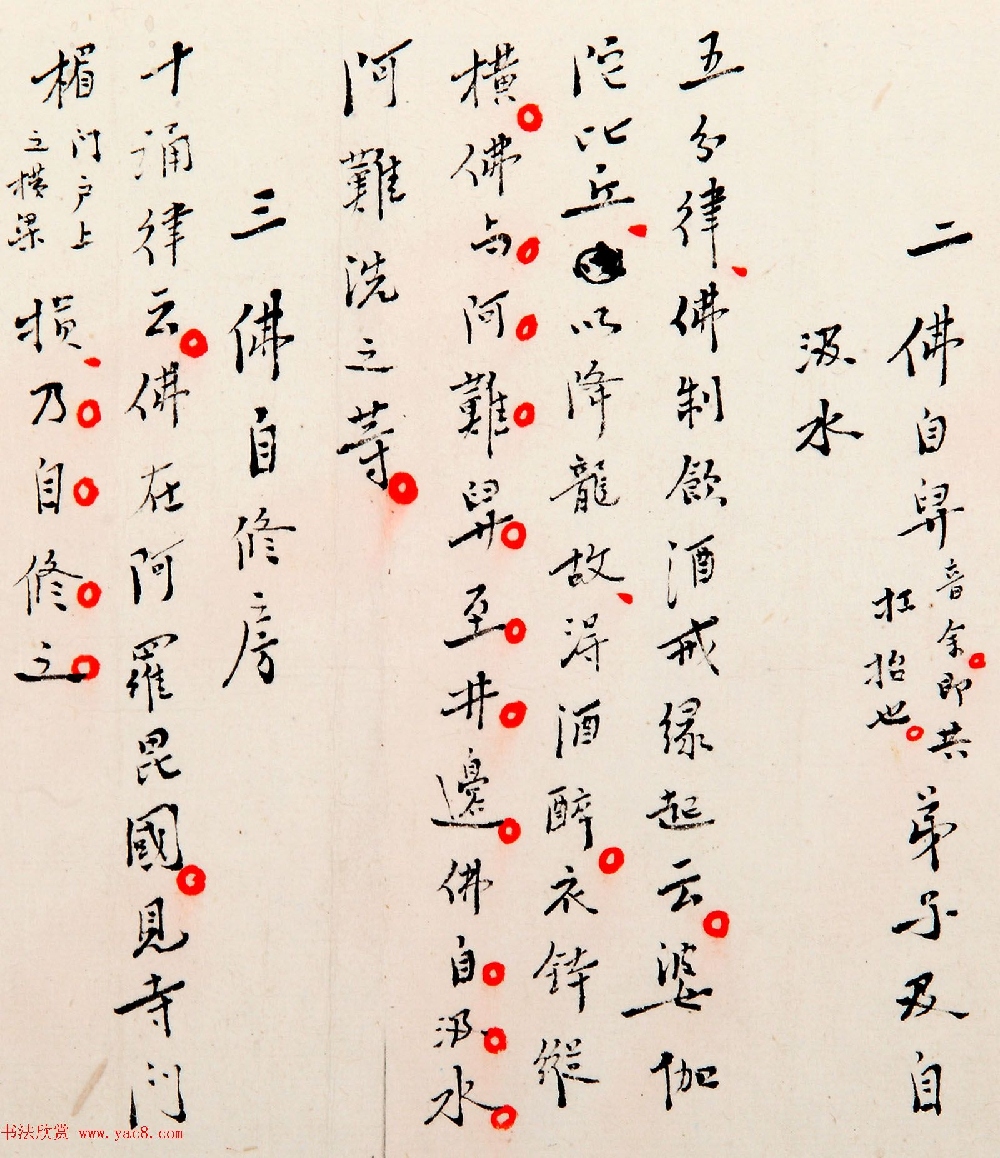 二 佛自舁音余即共杠抬也弟子及自
汲水
五分律、佛制飲酒戒緣起云。婆伽
陀比丘、以降龍故、淂酒醉。衣鉢縱
橫。佛与阿難舁至井邊。佛自汲水
阿難洗之等。
三 佛自修房
十誦律云。佛在阿羅毘國。見寺門
楣門戶上之橫梁損、乃自修之
书法欣赏 www.yac8.com